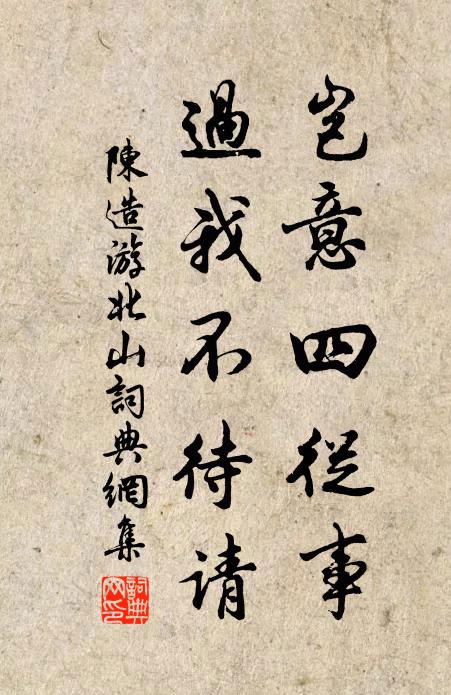 岂意四從事
過我不待请
陳造游北山詞典網集
詞典网印